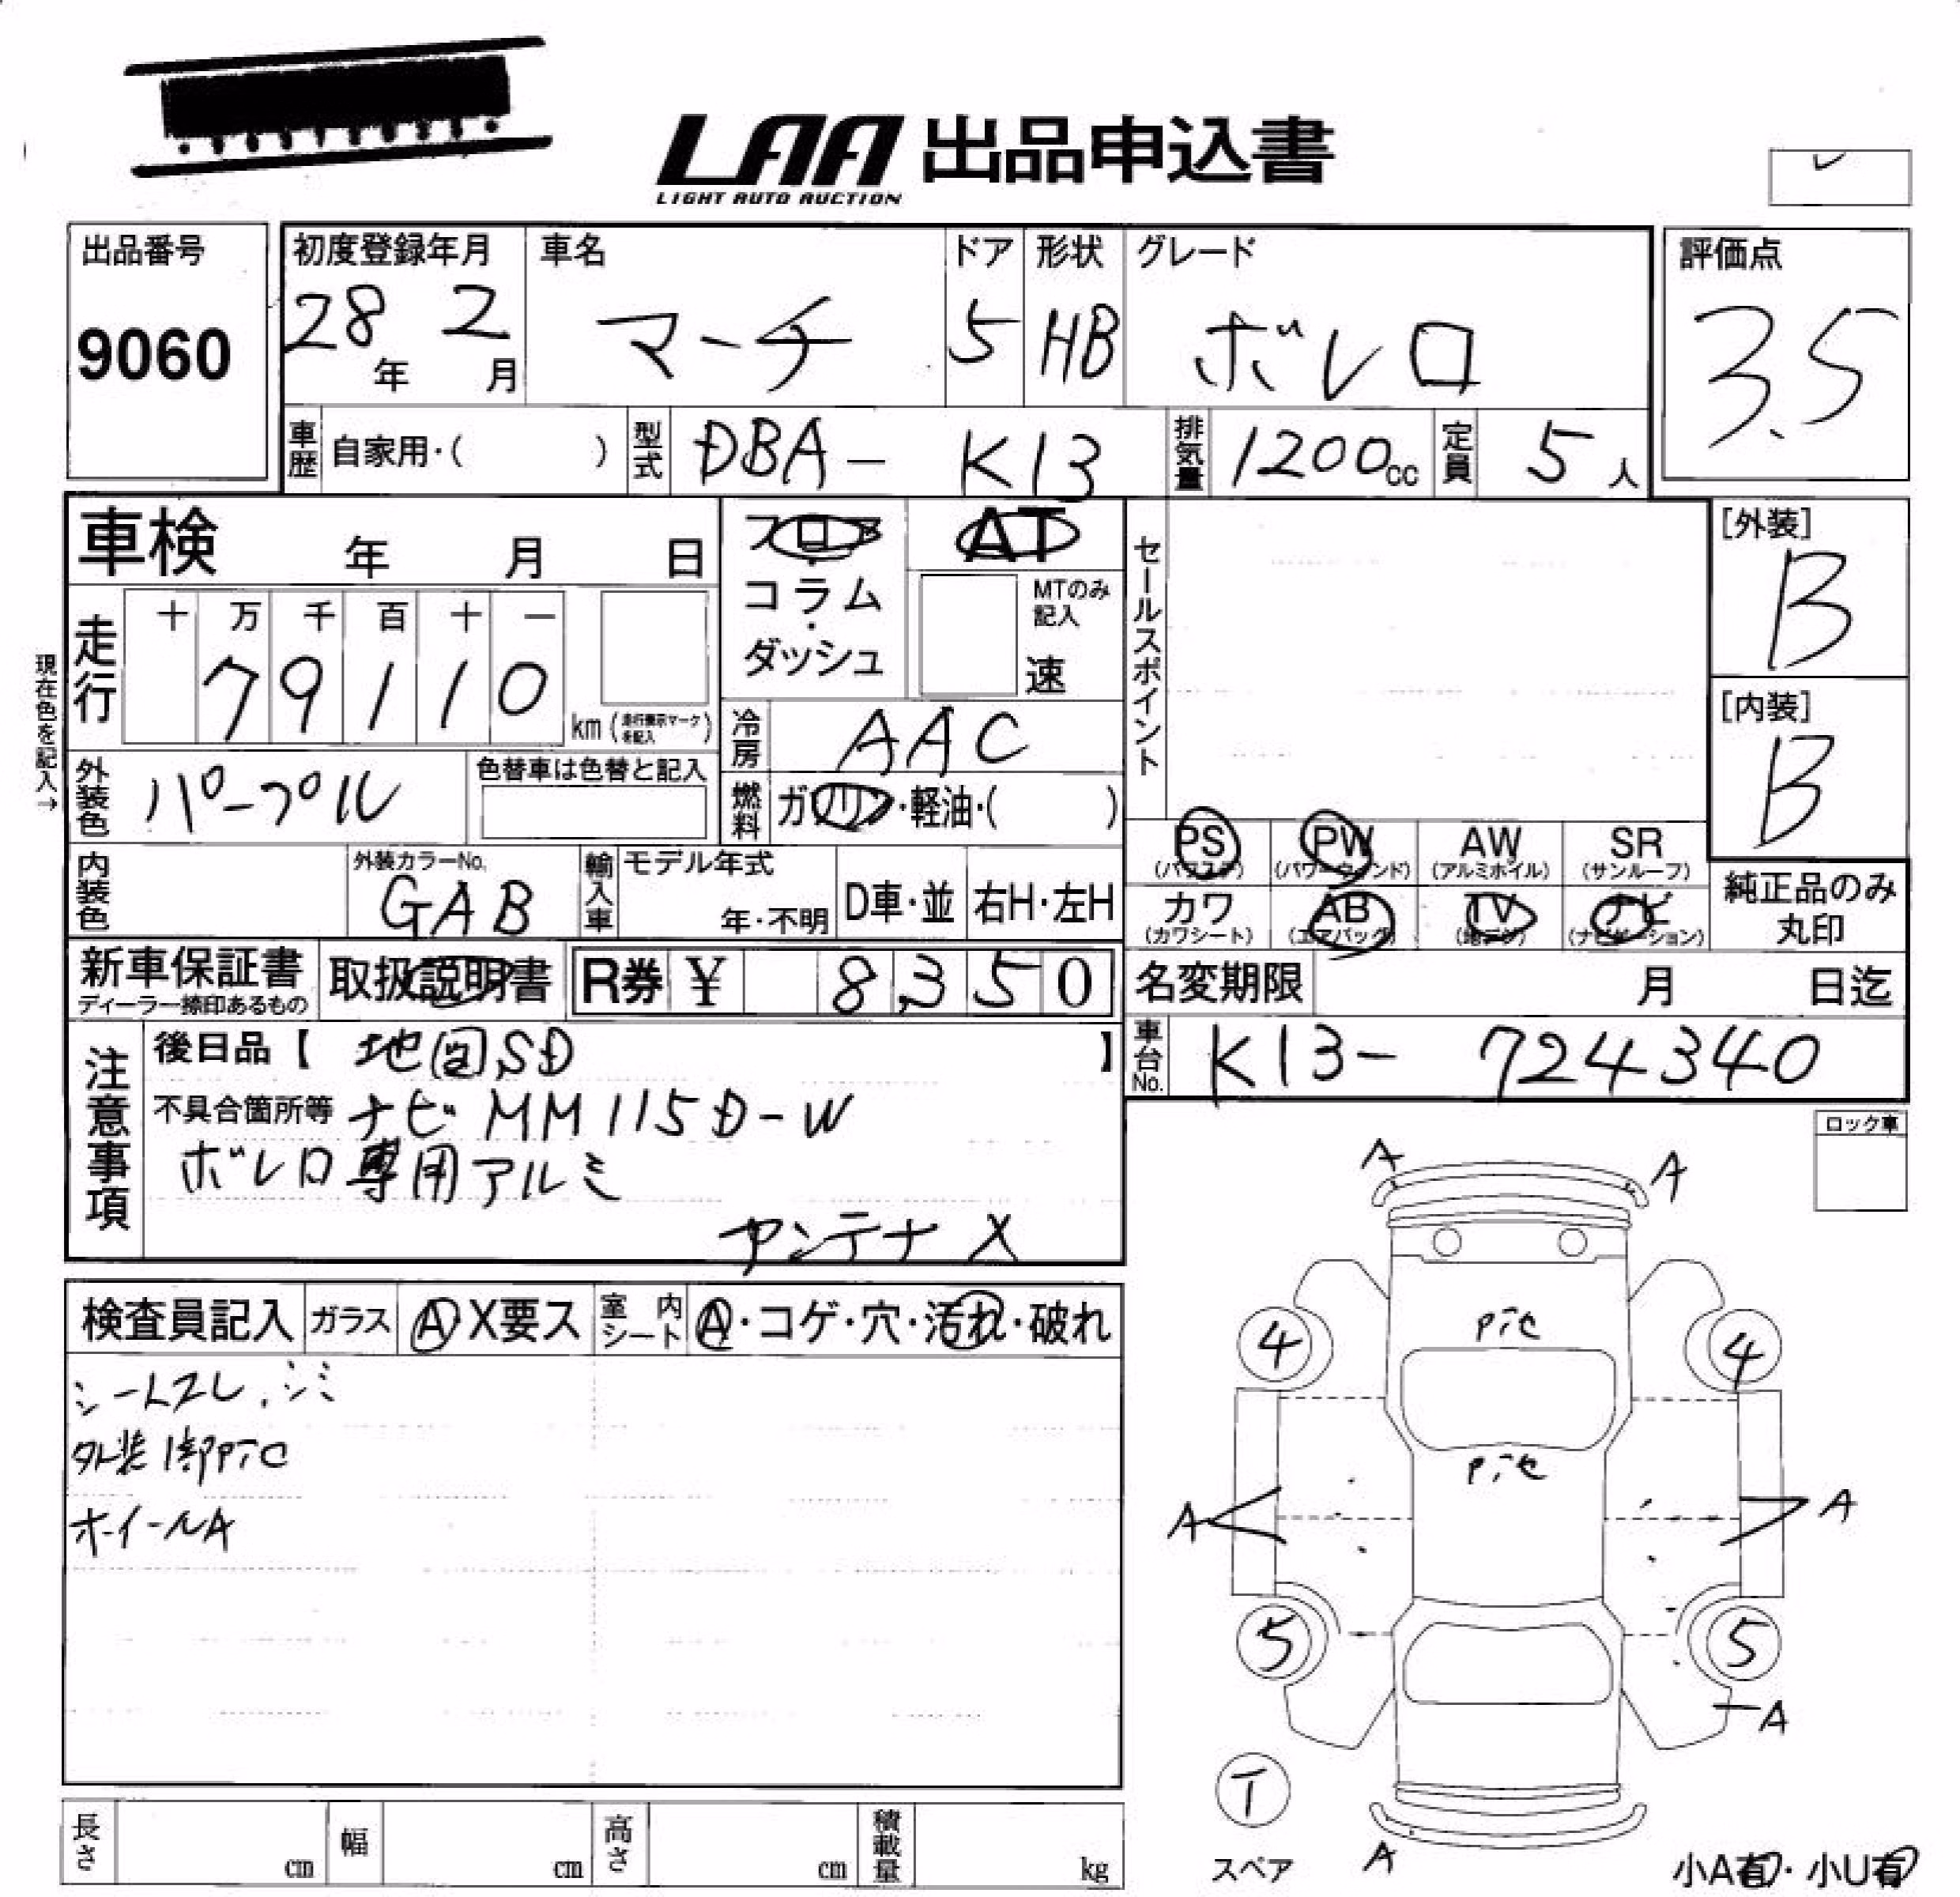 LAA 出品申込書
LIGHT AUTO AUCTION
出品番号
9060
初度登録年月
28年 2月
車名
マーチ
ドア
5
形状
HB
グレード
ボレロ
評価点
3.5
車歴 自家用・( )
型式 DBA- K13
排気量 1200cc
定員 5人
車検 年 月 日
フロア・コラム・ダッシュ
AT
MTのみ記入
速
セールスポイント
[外装]
B
[内装]
B
現在色を記入→
走行
十 万 千 百 十 一
7 9 1 1 0
km (走行表示マークを記入)
冷房 AAC
外装色 パープル
色替車は色替と記入
燃料 ガソリン・軽油・( )
PS (パワステ)
PW (パワーウィンド)
AW (アルミホイル)
SR (サンルーフ)
内装色
外装カラーNo.
GAB
輸入車
モデル年式
年・不明
D車・並
右H・左H
カワ (カワシート)
AB (エアバック)
TV (地デジ)
ナビ (ナビゲーション)
純正品のみ丸印
新車保証書
ディーラー捺印あるもの
取扱説明書
R券 ¥ 8,350
名変期限 月 日迄
車台No. K13- 724340
注意事項
後日品【 地図SD 】
不具合箇所等 ナビ MM115D-W
ボレロ専用アルミ
アンテナ X
ロック車
検査員記入
ガラス A X要ス
室内シート A・コゲ・穴・汚れ・破れ
シートスレ、シミ
外装1部PTC
ホイールA
A A
PTC
4 4
PTC
A A
5 5
A
T
スペア
A
小A有・小U有
長さ cm
幅 cm
高さ cm
積載量 kg